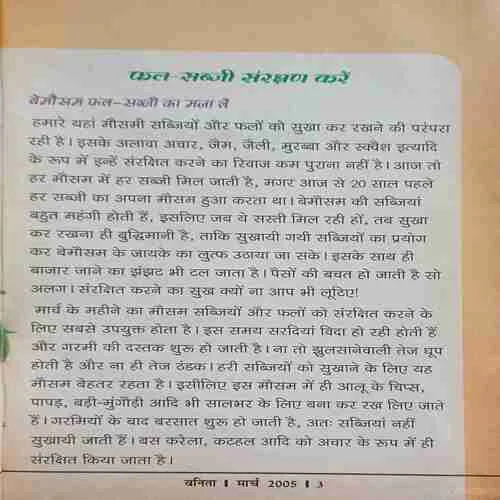 फल-सब्जी संरक्षण करें
बेमौसम फल-सब्जी का मजा लें
हमारे यहां मौसमी सब्जियों और फलों को सुखा कर रखने की परंपरा
रही है। इसके अलावा अचार, जैम, जैली, मुरब्बा और स्क्वैश इत्यादि
के रूप में इन्हें संरक्षित करने का रिवाज कम पुराना नहीं है। आज तो
हर मौसम में हर सब्जी मिल जाती है, मगर आज से 20 साल पहले
हर सब्जी का अपना मौसम हुआ करता था। बेमौसम की सब्जियां
बहुत महंगी होती हैं, इसलिए जब ये सस्ती मिल रही हों, तब सुखा
कर रखना ही बुद्धिमानी है, ताकि सुखायी गयी सब्जियों का प्रयोग
कर बेमौसम के जायके का लुत्फ उठाया जा सके। इसके साथ ही
बाजार जाने का झंझट भी टल जाता है। पैसों की बचत हो जाती है सो
अलग। संरक्षित करने का सुख क्यों ना आप भी लूटिए!
मार्च के महीने का मौसम सब्जियों और फलों को संरक्षित करने के
लिए सबसे उपयुक्त होता है। इस समय सरदियां विदा हो रही होती हैं
और गरमी की दस्तक शुरू हो जाती है। ना तो झुलसानेवाली तेज धूप
होती है और ना ही तेज ठंडक। हरी सब्जियों को सुखाने के लिए यह
मौसम बेहतर रहता है। इसीलिए इस मौसम में ही आलू के चिप्स,
पापड़, बड़ी-मुंगौड़ी आदि भी सालभर के लिए बना कर रख लिए जाते
हैं। गरमियों के बाद बरसात शुरू हो जाती है, अतः सब्जियां नहीं
सुखायी जाती हैं। बस करेला, कटहल आदि को अचार के रूप में ही
संरक्षित किया जाता है।
वनिता । मार्च 2005 । 3